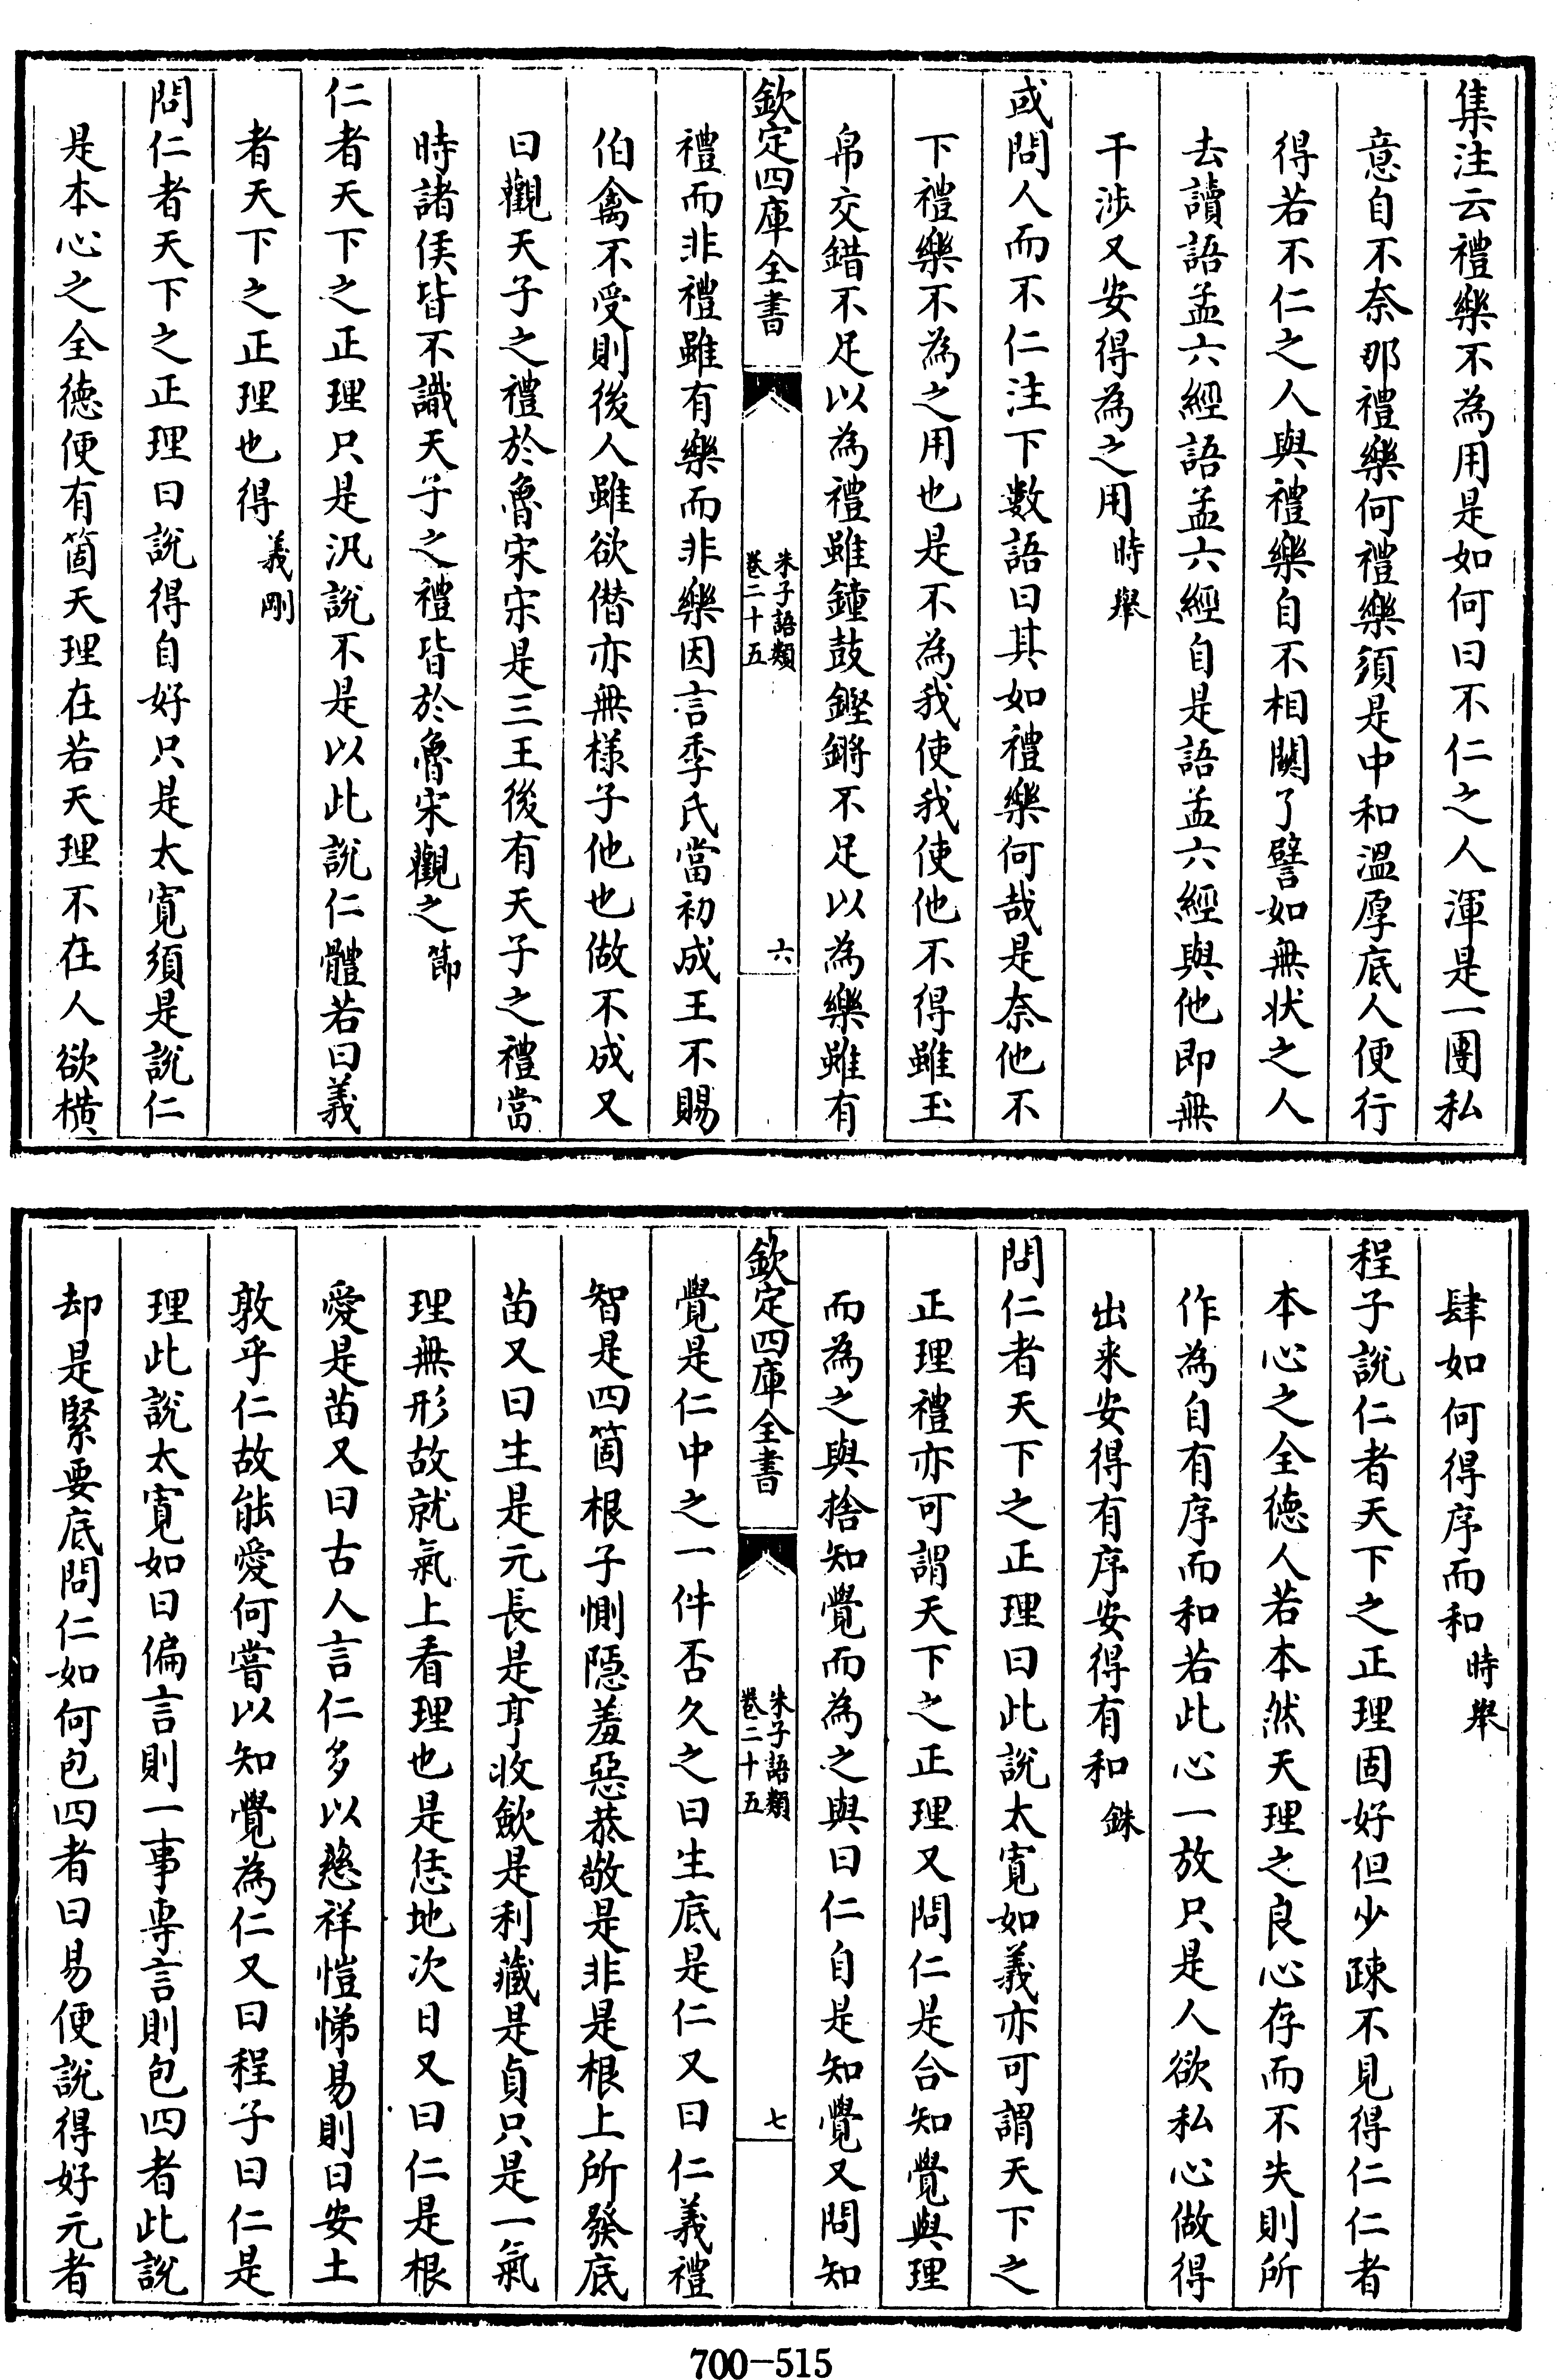 集注云禮樂不為用是如何曰不仁之人渾是一團私
意自不奈那禮樂何禮樂須是中和溫厚底人便行
得若不仁之人與禮樂自不相關了譬如無狀之人
去讀語孟六經語孟六經自是語孟六經與他即無
干涉又安得為之用時舉
或問人而不仁注下數語曰其如禮樂何哉是奈他不
下禮樂不為之用也是不為我使我使他不得雖玉
帛交錯不足以為禮雖鐘鼓鏗鏘不足以為樂雖有
欽定四庫全書
朱子語類
卷二十五
六
禮而非禮雖有樂而非樂因言季氏當初成王不賜
伯禽不受則後人雖欲僭亦無様子他也做不成又
曰觀天子之禮於魯宋宋是三王後有天子之禮當
時諸侯皆不識天子之禮皆於魯宋觀之節
仁者天下之正理只是汎說不是以此說仁體若曰義
者天下之正理也得義剛
問仁者天下之正理曰說得自好只是太寛須是說仁
是本心之全徳便有箇天理在若天理不在人欲横
肆如何得序而和時舉
程子說仁者天下之正理固好但少疎不見得仁仁者
本心之全徳人若本然天理之良心存而不失則所
作為自有序而和若此心一放只是人欲私心做得
出来安得有序安得有和銖
問仁者天下之正理曰此說太寛如義亦可謂天下之
正理禮亦可謂天下之正理又問仁是合知覺與理
而為之與捨知覺而為之與曰仁自是知覺又問知
欽定四庫全書
朱子語類
卷二十五
七
覺是仁中之一件否久之曰生底是仁又曰仁義禮
智是四箇根子惻隠羞惡恭敬是非是根上所發底
苗又曰生是元長是亨收歛是利藏是貞只是一氣
理無形故就氣上看理也是恁地次日又曰仁是根
愛是苗又曰古人言仁多以慈祥愷悌易則曰安土
敦乎仁故能愛何嘗以知覺為仁又曰程子曰仁是
理此說太寛如曰偏言則一事專言則包四者此說
却是緊要底問仁如何包四者曰易便說得好元者
700-515